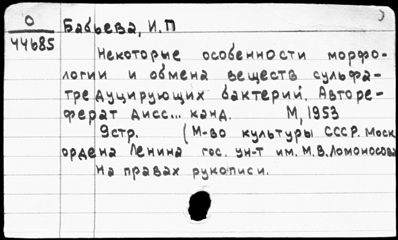 О
44685
Бабьева, И.П
Некоторые особенности морфо-
логии и обмена веществ сульфа-
тредуцирующих бактерий. Авторе-
ферат дисс... канд. М, 1953
9стр. (М-во культуры СССР. Моск
ордена Ленина гос. ун-т им. М.В. Ломоносова
На правах рукописи.